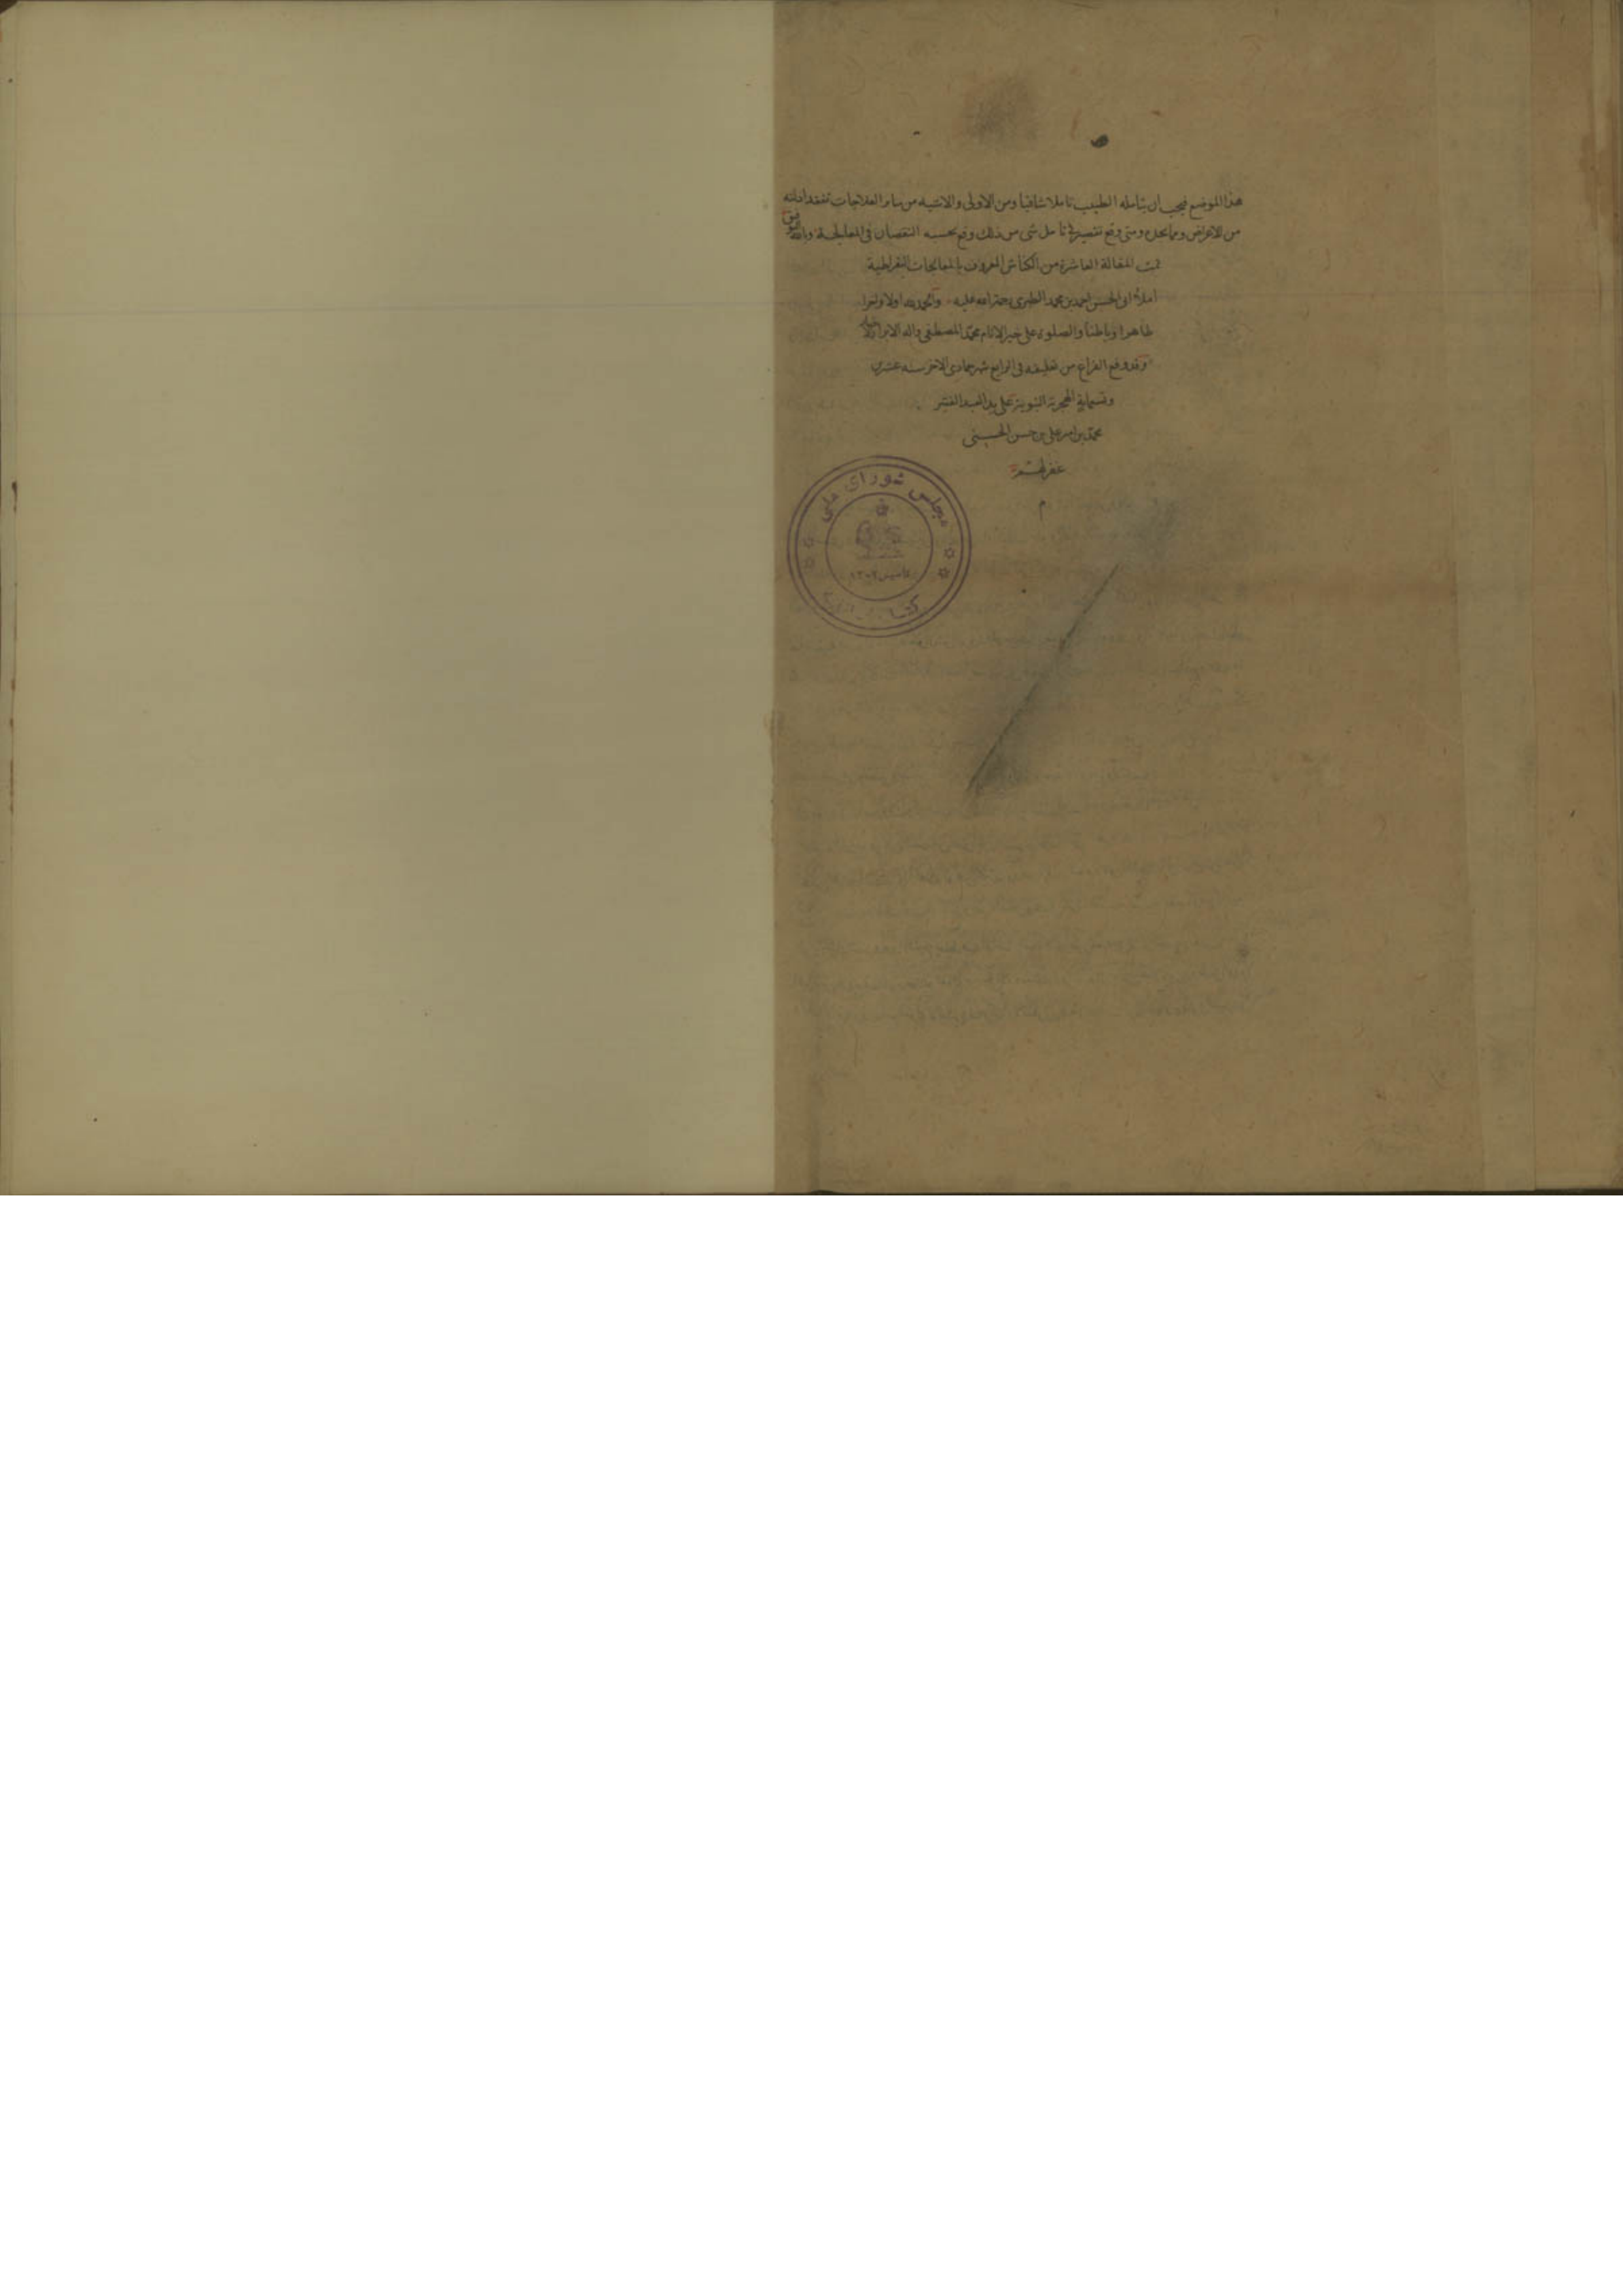 هذا الموضع فيجب ان يتامله الطبيب تاملا شافيا ومن الاولى والاشبه من سائر العلاجات تفقد
من الاعراض وما يحل ومتى وقع تقصير في تامل شى من ذلك وقع بحسبه النقصان فى المعالجة وبالله التوفيق
تمت المقالة العاشرة من الكناش المعروف بالمعالجات البقراطية
املاء ابى الحسن احمد بن محمد الطبرى رحمة الله عليه والحمد لله اولا واخرا
ظاهرا وباطنا والصلوة على خير الانام محمد المصطفى واله الابرار
وقد وقع الفراغ من تعليقه فى الرابع شهر جمادى الاخر سنه عشرين
وتسمايه الهجرية النبوية على يد العبد الفقير
محمد بن امير على بن حسن الحسينى
غفر لهم
م
مجلس شورای ملی
تاسیس ۱۳۰۲